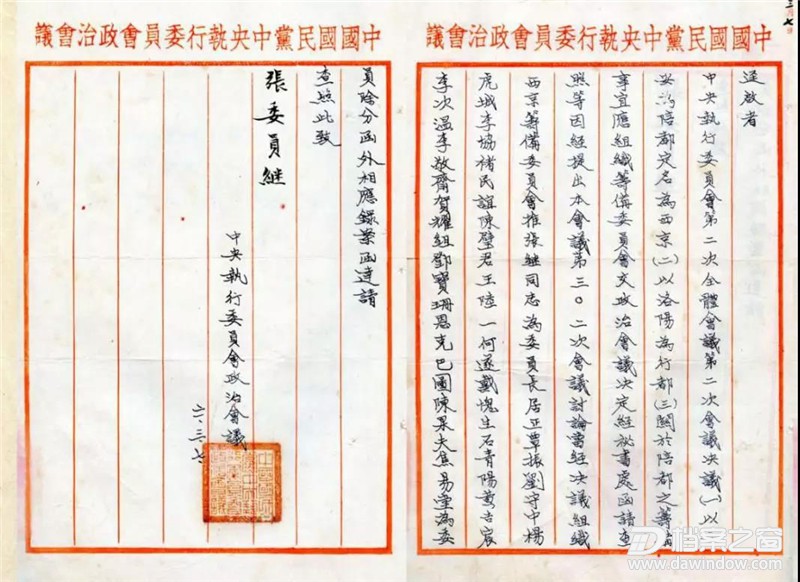 中國國民黨中央執行委員會政治會議
逕啟者
中央執行委員會第二次全體會議第二次會議決議(一)以
長安為陪都定名為西京(二)以洛陽為行都(三)關於陪都之籌備
事宜應組織籌備委員會交政治會議決定經秘書處函請查
照等因經提出本會議第三〇二次會議討論當經決議組織
西京籌備委員會推張繼同志為委員長居正覃振劉守中楊
虎城李協褚民誼陳璧君王陸一何遂戴愧生石青陽黃吉宸
李次溫李敬齋賀耀組鄧寶珊恩克巴圖陳果夫焦易堂為委
中國國民黨中央執行委員會政治會議
員除分函外相應錄案函達請
查照此致
張委員繼
中央執行委員會政治會議
三、七、
档案之窗
www.dawindow.com